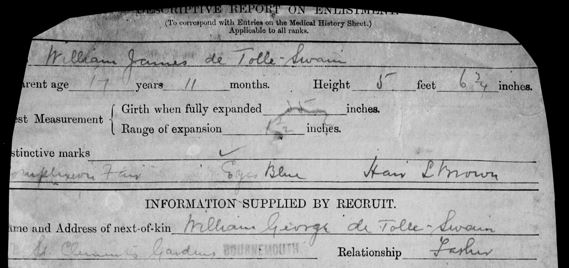 DESCRIPTIVE REPORT ON ENLISTMENT.
(To correspond with Entries on the Medical History Sheet.)
Applicable to all ranks.
William James de Tolle-Swain
arent age 17 years 11 months. Height 5 feet 6 3/4 inches.
Girth when fully expanded 35 inches.
est Measurement
Range of expansion 1 1/2 inches.
stinctive marks
omplexion Fair Eyes Blue Hair L Brown
INFORMATION SUPPLIED BY RECRUIT.
ame and Address of next-of-kin William George de Tolle-Swain
St. Clements Gardens BOURNEMOUTH Relationship Father